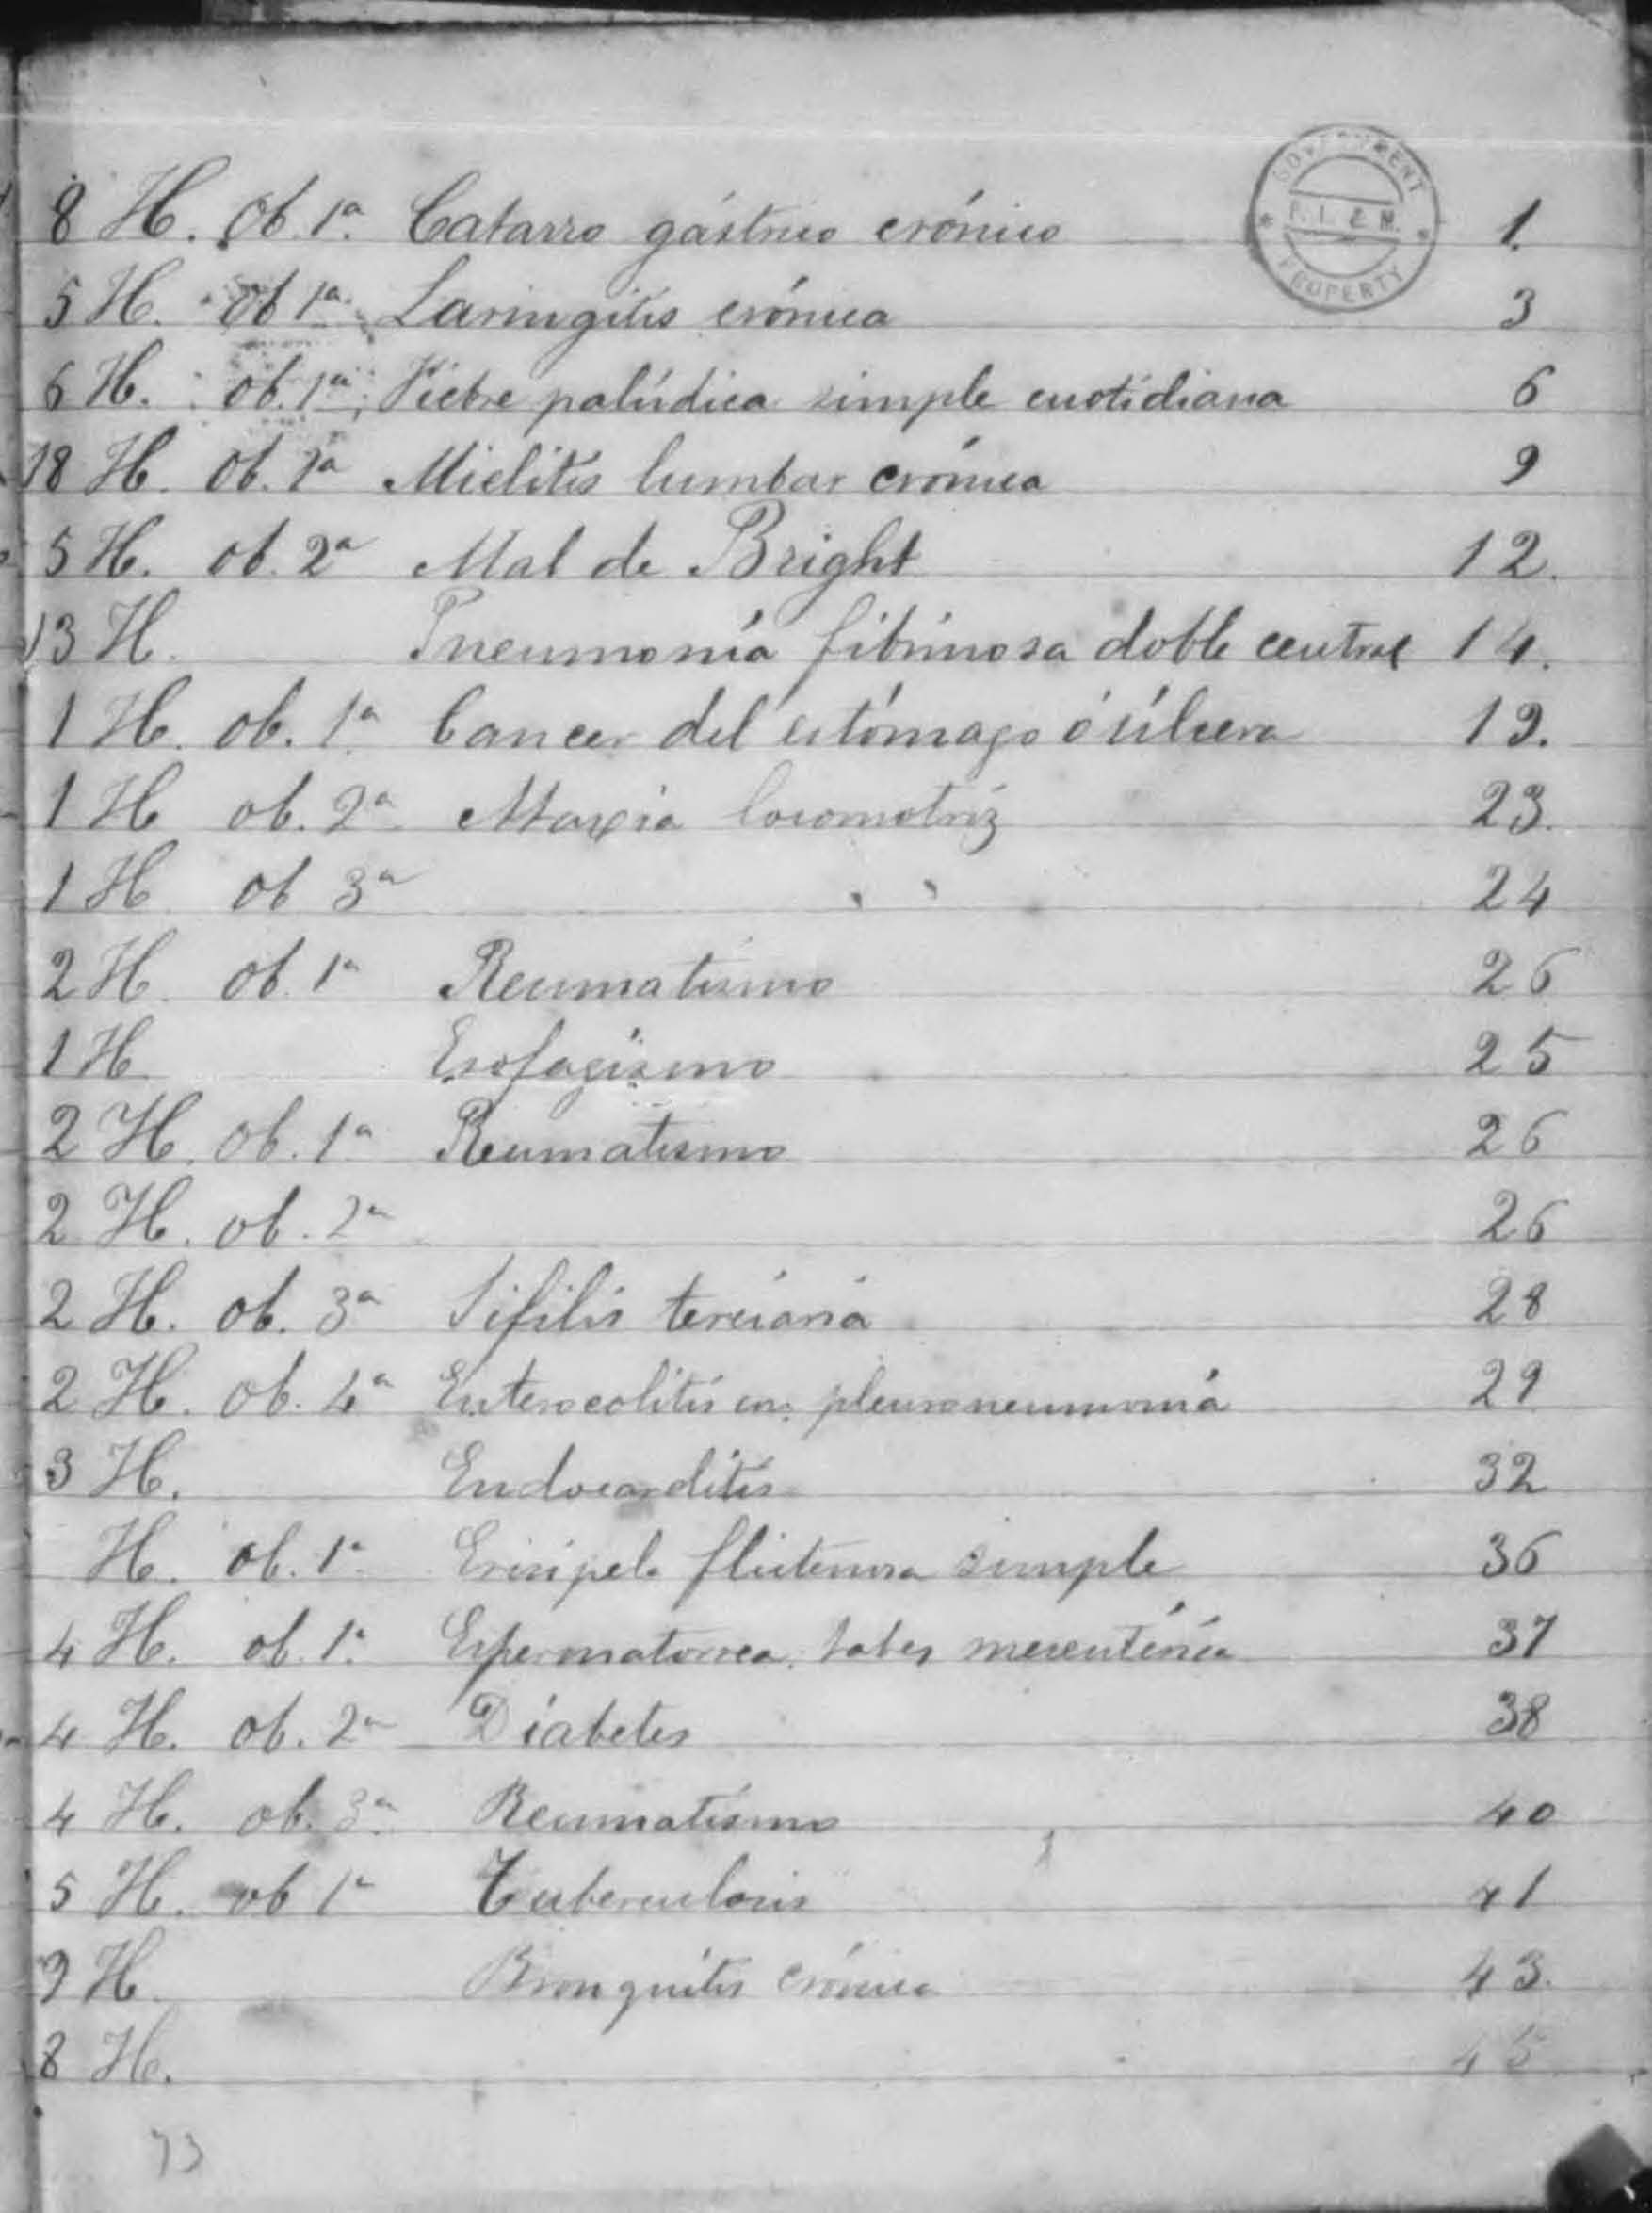 GOVERNMENT
P.I. & M.
PROPERTY
8 H. Ob. 1ª Catarro gástrico crónico 1.
5 H. Ob 1ª Laringitis crónica 3
6 H. ob. 1ª Fiebre palúdica simple cuotidiana 6
18 H. Ob. 1ª Mielitis lumbar crónica 9
5 H. ob. 2ª Mal de Bright 12.
13 H. Pneumonía fibrinosa doble central 14.
1 H. ob. 1ª Cancer del estómago ó úlcera 19.
1 H ob. 2ª Ataxia locomotriz 23.
1 H ob 3ª " 24
2 H. ob. 1ª Reumatismo 26
1 H Esofagismo 25
2 H. Ob. 1ª Reumatismo 26
2 H. ob. 2ª 26
2 H. ob. 3ª Sifilis terciaria 28
2 H. ob. 4ª Enterocolitis pleuroneumonía 29
3 H. Endocarditis 32
H. ob. 1ª Erisipela flictenosa simple 36
4 H. ob. 1ª Espermatorrea, tabes mesentérica 37
4 H. ob. 2ª Diabetes 38
4 H. ob. 3ª Reumatismo 40
5 H. ob 1ª Tuberculosis 41
9 H Bronquitis crónica 43.
8 H. 45
73